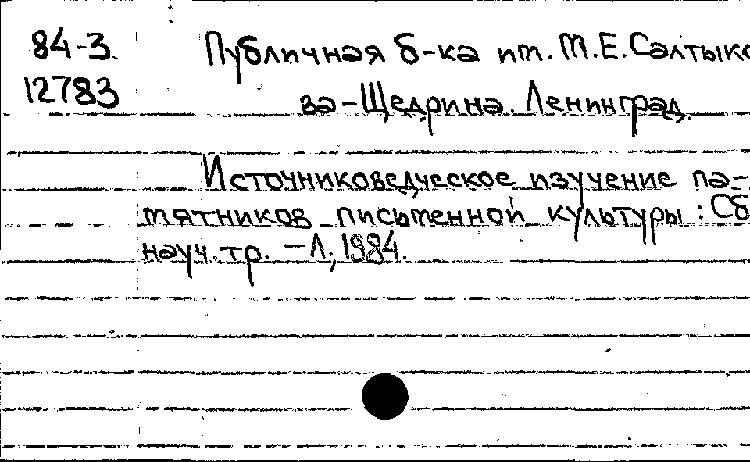 84-3.
12783
Публичная б-ка им. М.Е.Салтыко
ва-Щедрина. Ленинград.
Источниковедческое изучение па-
мятников письменной культуры: Сб
науч. тр. - Л., 1984.